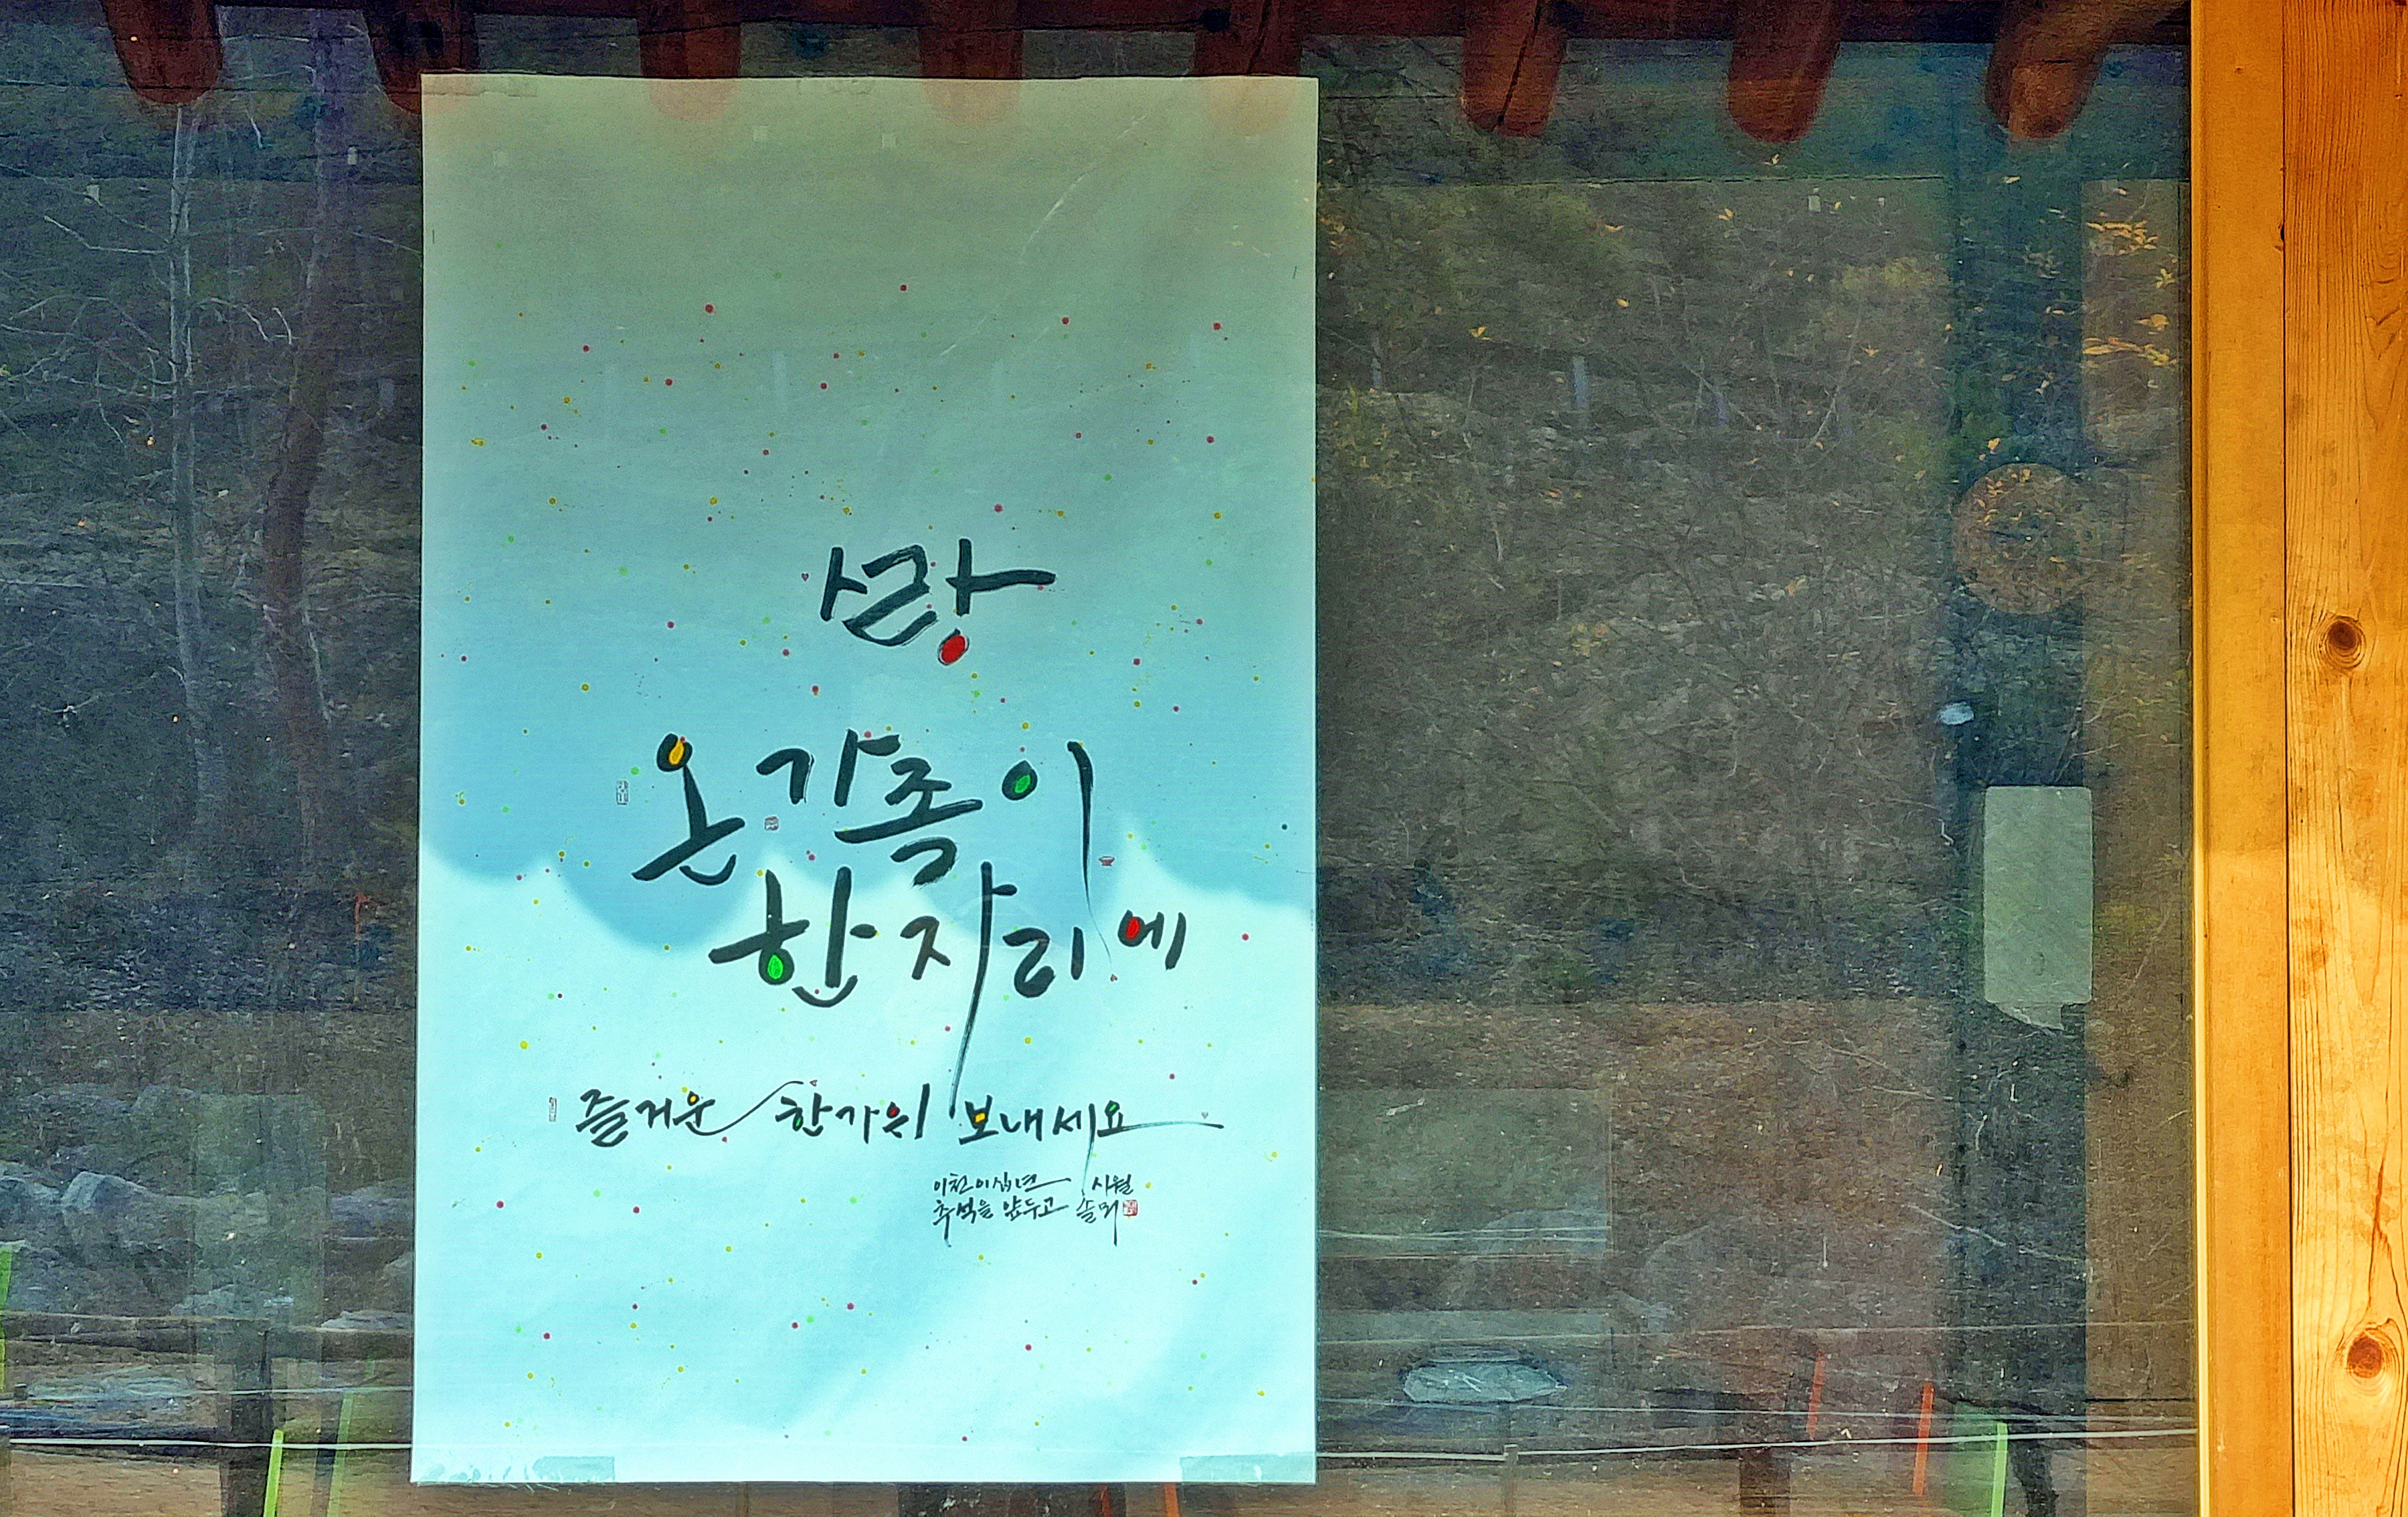 사랑
온가족이
한자리에
즐거운 한가위 보내세요
이천이십년 사월
추석을 앞두고 솔뫼